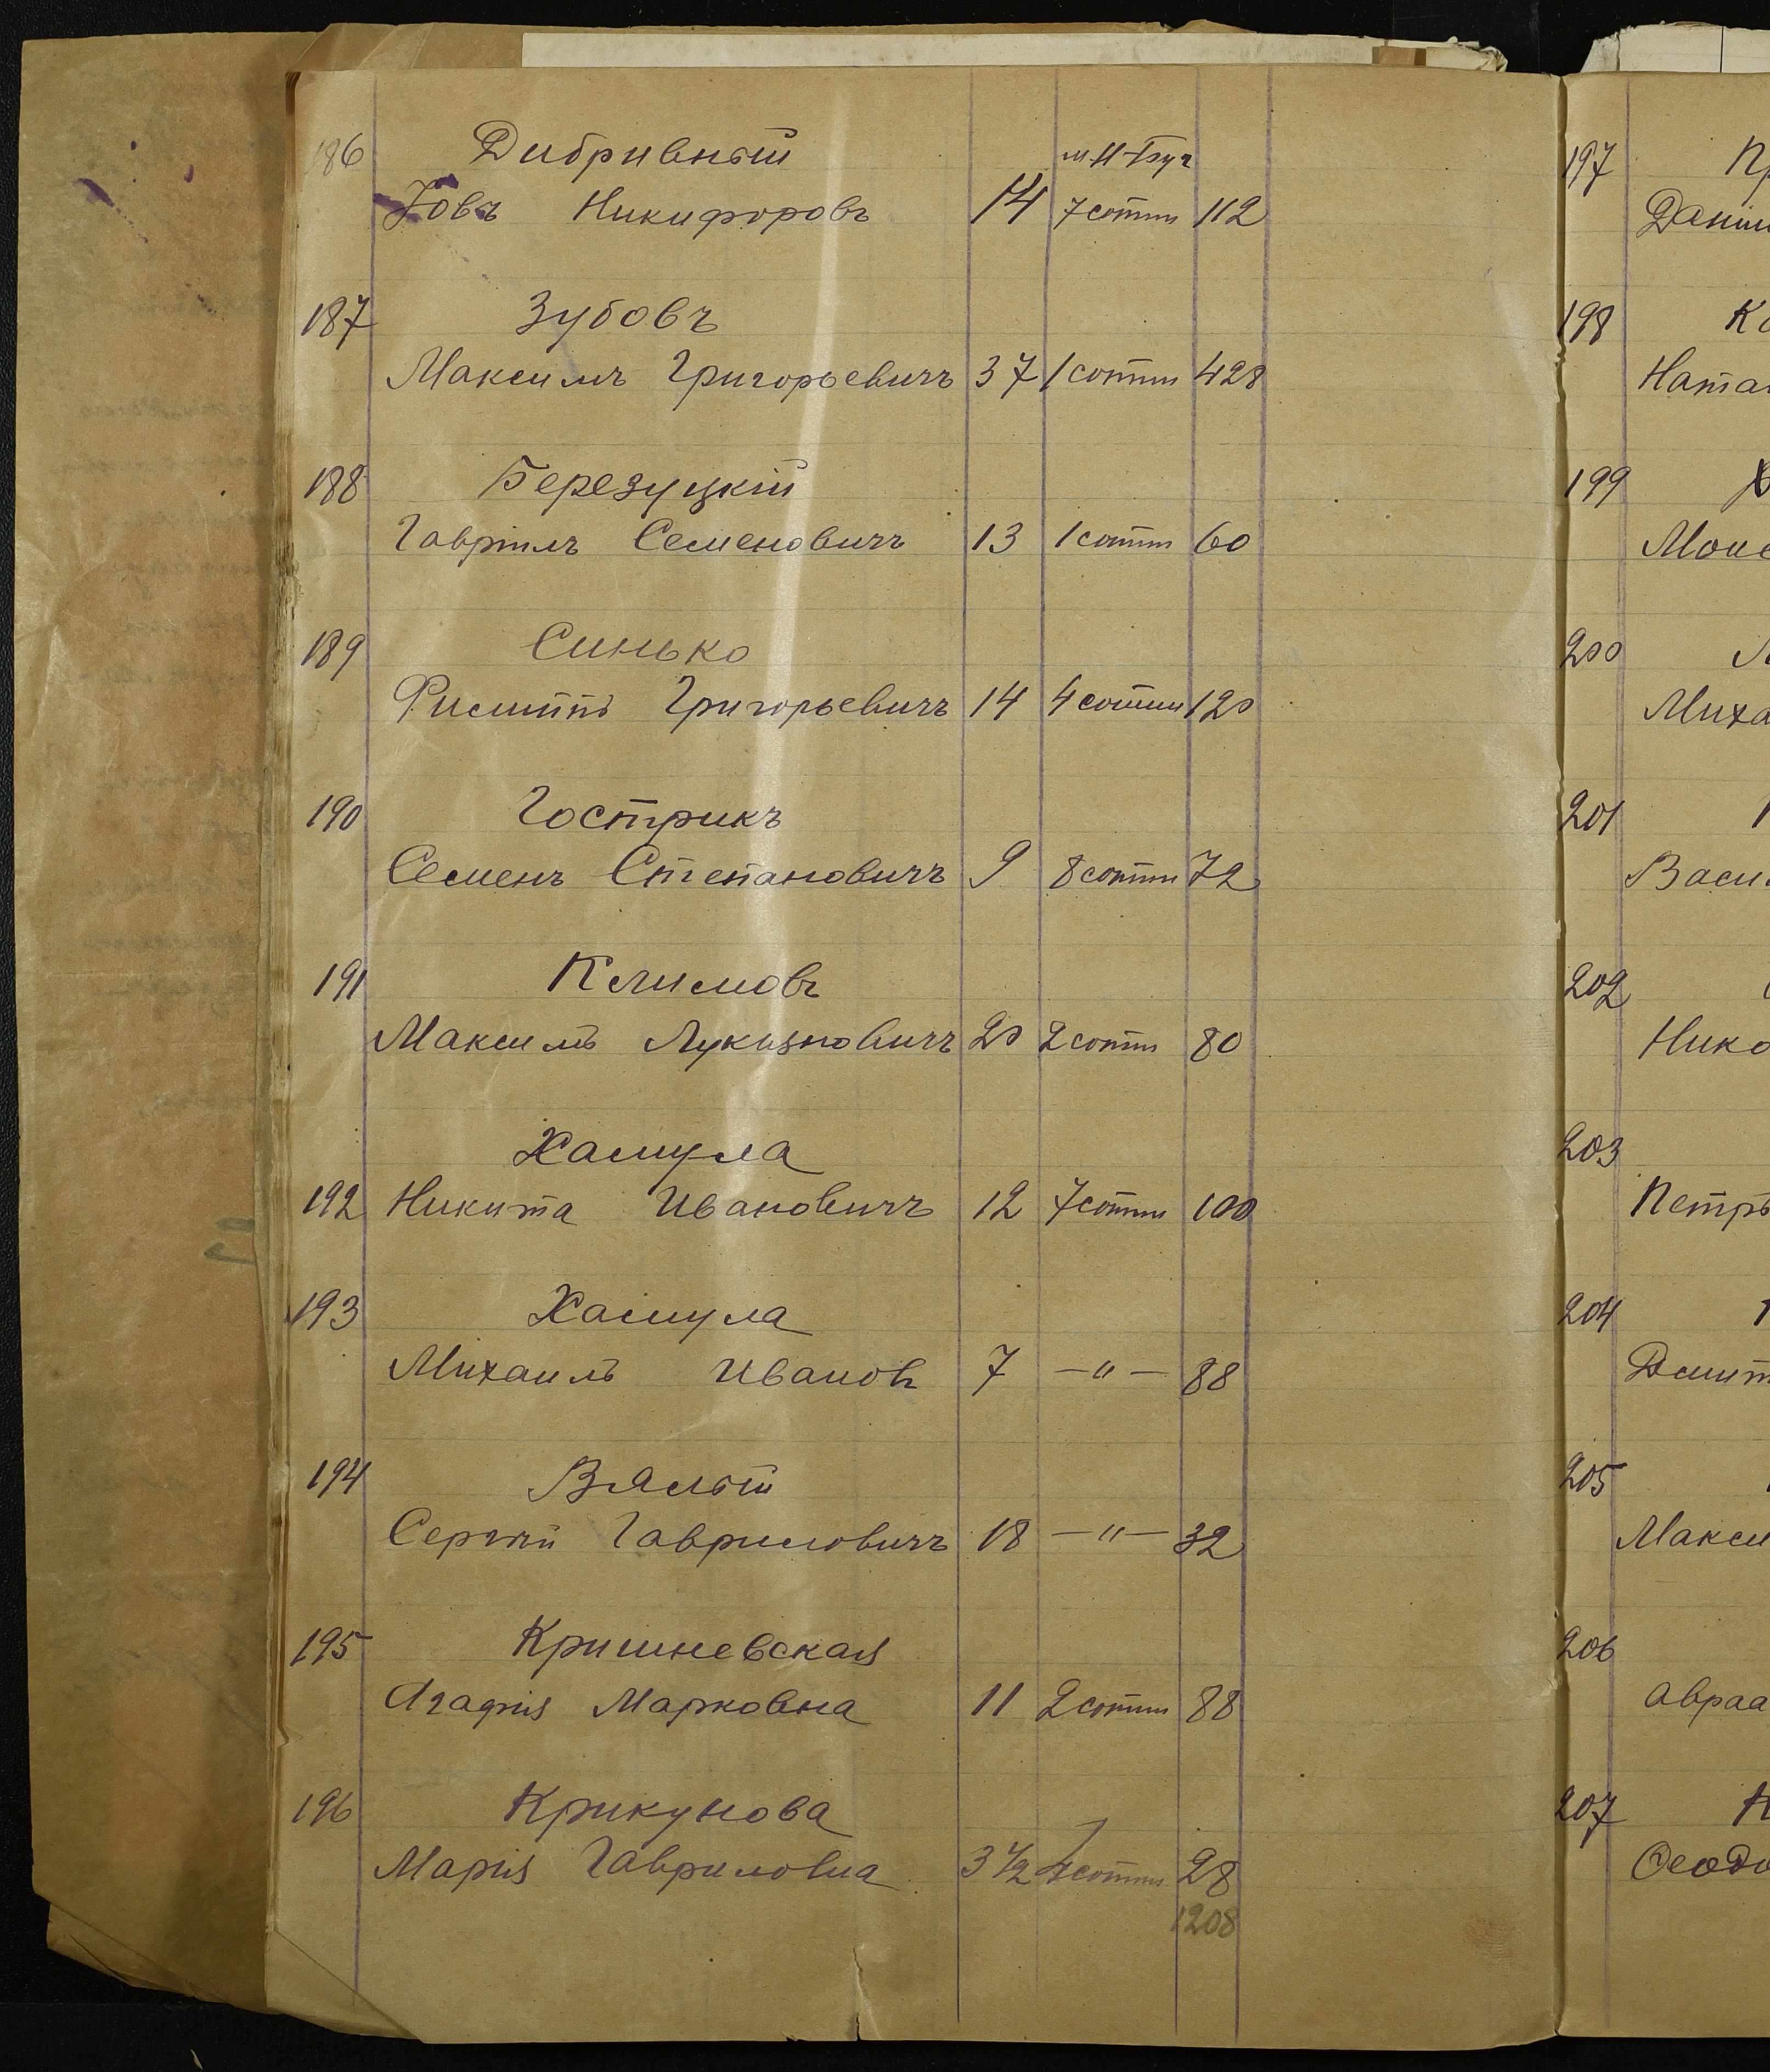 186 Дибривный
м. Н-Буг
Іовъ Никифоровъ 14 7 сотни 112
187 Зубовъ
Максимъ Григорьевичъ 37 1 сотни 428
188 Березуцкій
Гавріилъ Семеновичъ 13 1 сотни 60
189 Синько
Филиппъ Григорьевичъ 14 4 сотни 120
190 Гострикъ
Семенъ Степановичъ 9 8 сотни 72
191 Климовъ
Максимъ Лукьяновичъ 20 2 сотни 80
Хамула
192 Никита Ивановичъ 12 7 сотни 100
193 Хамула
Михаилъ Ивановъ 7 —"— 88
194 Вялый
Сергѣй Гавриловичъ 18 —"— 32
195 Кришневская
Агафія Марковна 11 2 сотни 88
196 Крикунова
Марія Гавриловна 3 1/2 сотни 28
1208
197
198
199
200
201
202
203
Петръ
204
205
206
207